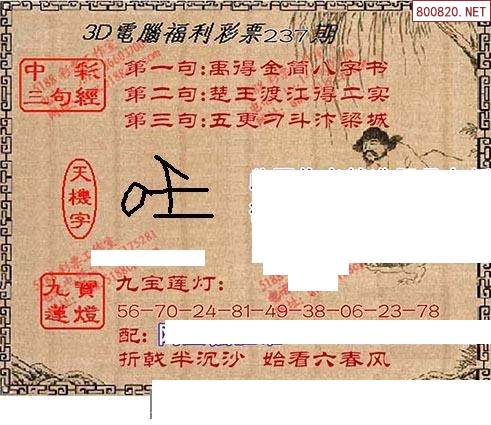 800820.NET
3D電腦福利彩票237期
中彩
三句經
第一句:禹得金简八字书
第二句:楚王渡江得二实
第三句:五更刁斗汴梁城
天機字
九寶
蓮燈
九宝莲灯:
56-70-24-81-49-38-06-23-78
配:
折戟半沉沙 始看六春风